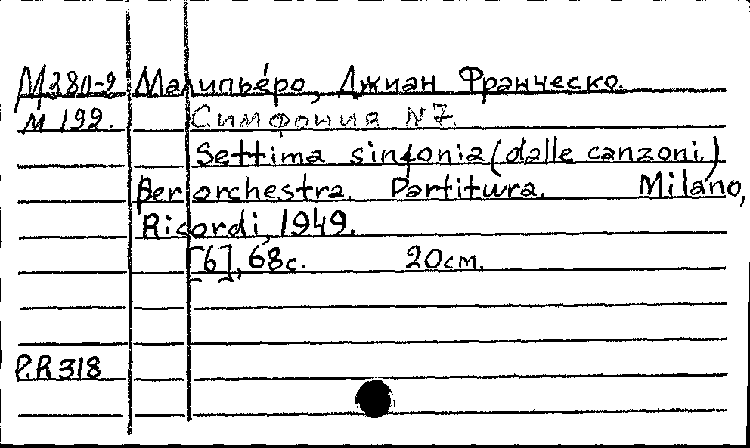 М380-2 Малипье́ро, Джиан Франческо.
М 199. Симфония N7.
Settima sinfonia (dalle canzoni)
per orchestra. Partitura. Milano,
Ricordi, 1949.
[6], 68с. 20см.
P.R 318